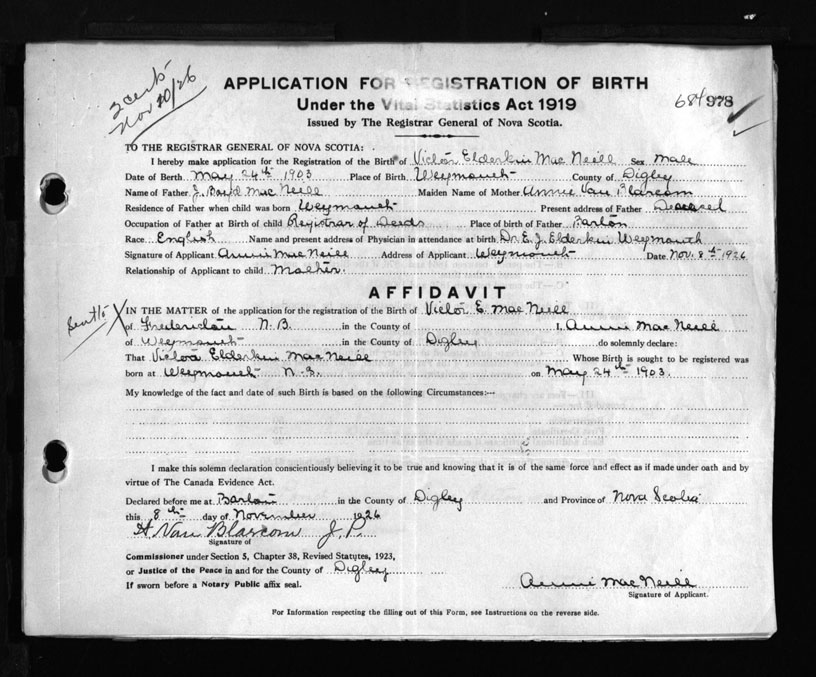 2 certs
Nov 20/26
APPLICATION FOR REGISTRATION OF BIRTH
Under the Vital Statistics Act 1919
Issued by The Registrar General of Nova Scotia.
684978
TO THE REGISTRAR GENERAL OF NOVA SCOTIA:
I hereby make application for the Registration of the Birth of Victor Elderkin Mac Neill Sex Male
Date of Berth May 24th 1903 Place of Birth Weymouth County of Digby
Name of Father J. Boyd Mac Neill Maiden Name of Mother Annie Van Blarcom
Residence of Father when child was born Weymouth Present address of Father Deceased
Occupation of Father at Birth of child Registrar of Deeds Place of birth of Father Barton
Race English Name and present address of Physician in attendance at birth Dr. E. J. Elderkin Weymouth
Signature of Applicant Annie Mac Neill Address of Applicant Weymouth Date Nov. 8th 1926
Relationship of Applicant to child Mother.
AFFIDAVIT
Sent to X
IN THE MATTER of the application for the registration of the Birth of Victor E. Mac Neill
of Fredericton N. B. in the County of I, Annie Mac Neill
of Weymouth in the County of Digby do solemnly declare:
That Victor Elderkin Mac Neill Whose Birth is sought to be registered was
born at Weymouth N. S. on May 24th 1903.
My knowledge of the fact and date of such Birth is based on the following Circumstances:---
I make this solemn declaration conscientiously believing it to be true and knowing that it is of the same force and effect as if made under oath and by
virtue of The Canada Evidence Act.
Declared before me at Barton in the County of Digby and Province of Nova Scotia
this 8th day of November 1926
H Van Blarcom J. P.
Signature of
Commissioner under Section 5, Chapter 38, Revised Statutes, 1923,
or Justice of the Peace in and for the County of Digby
If sworn before a Notary Public affix seal.
Annie Mac Neill
Signature of Applicant.
For Information respecting the filling out of this Form, see Instructions on the reverse side.